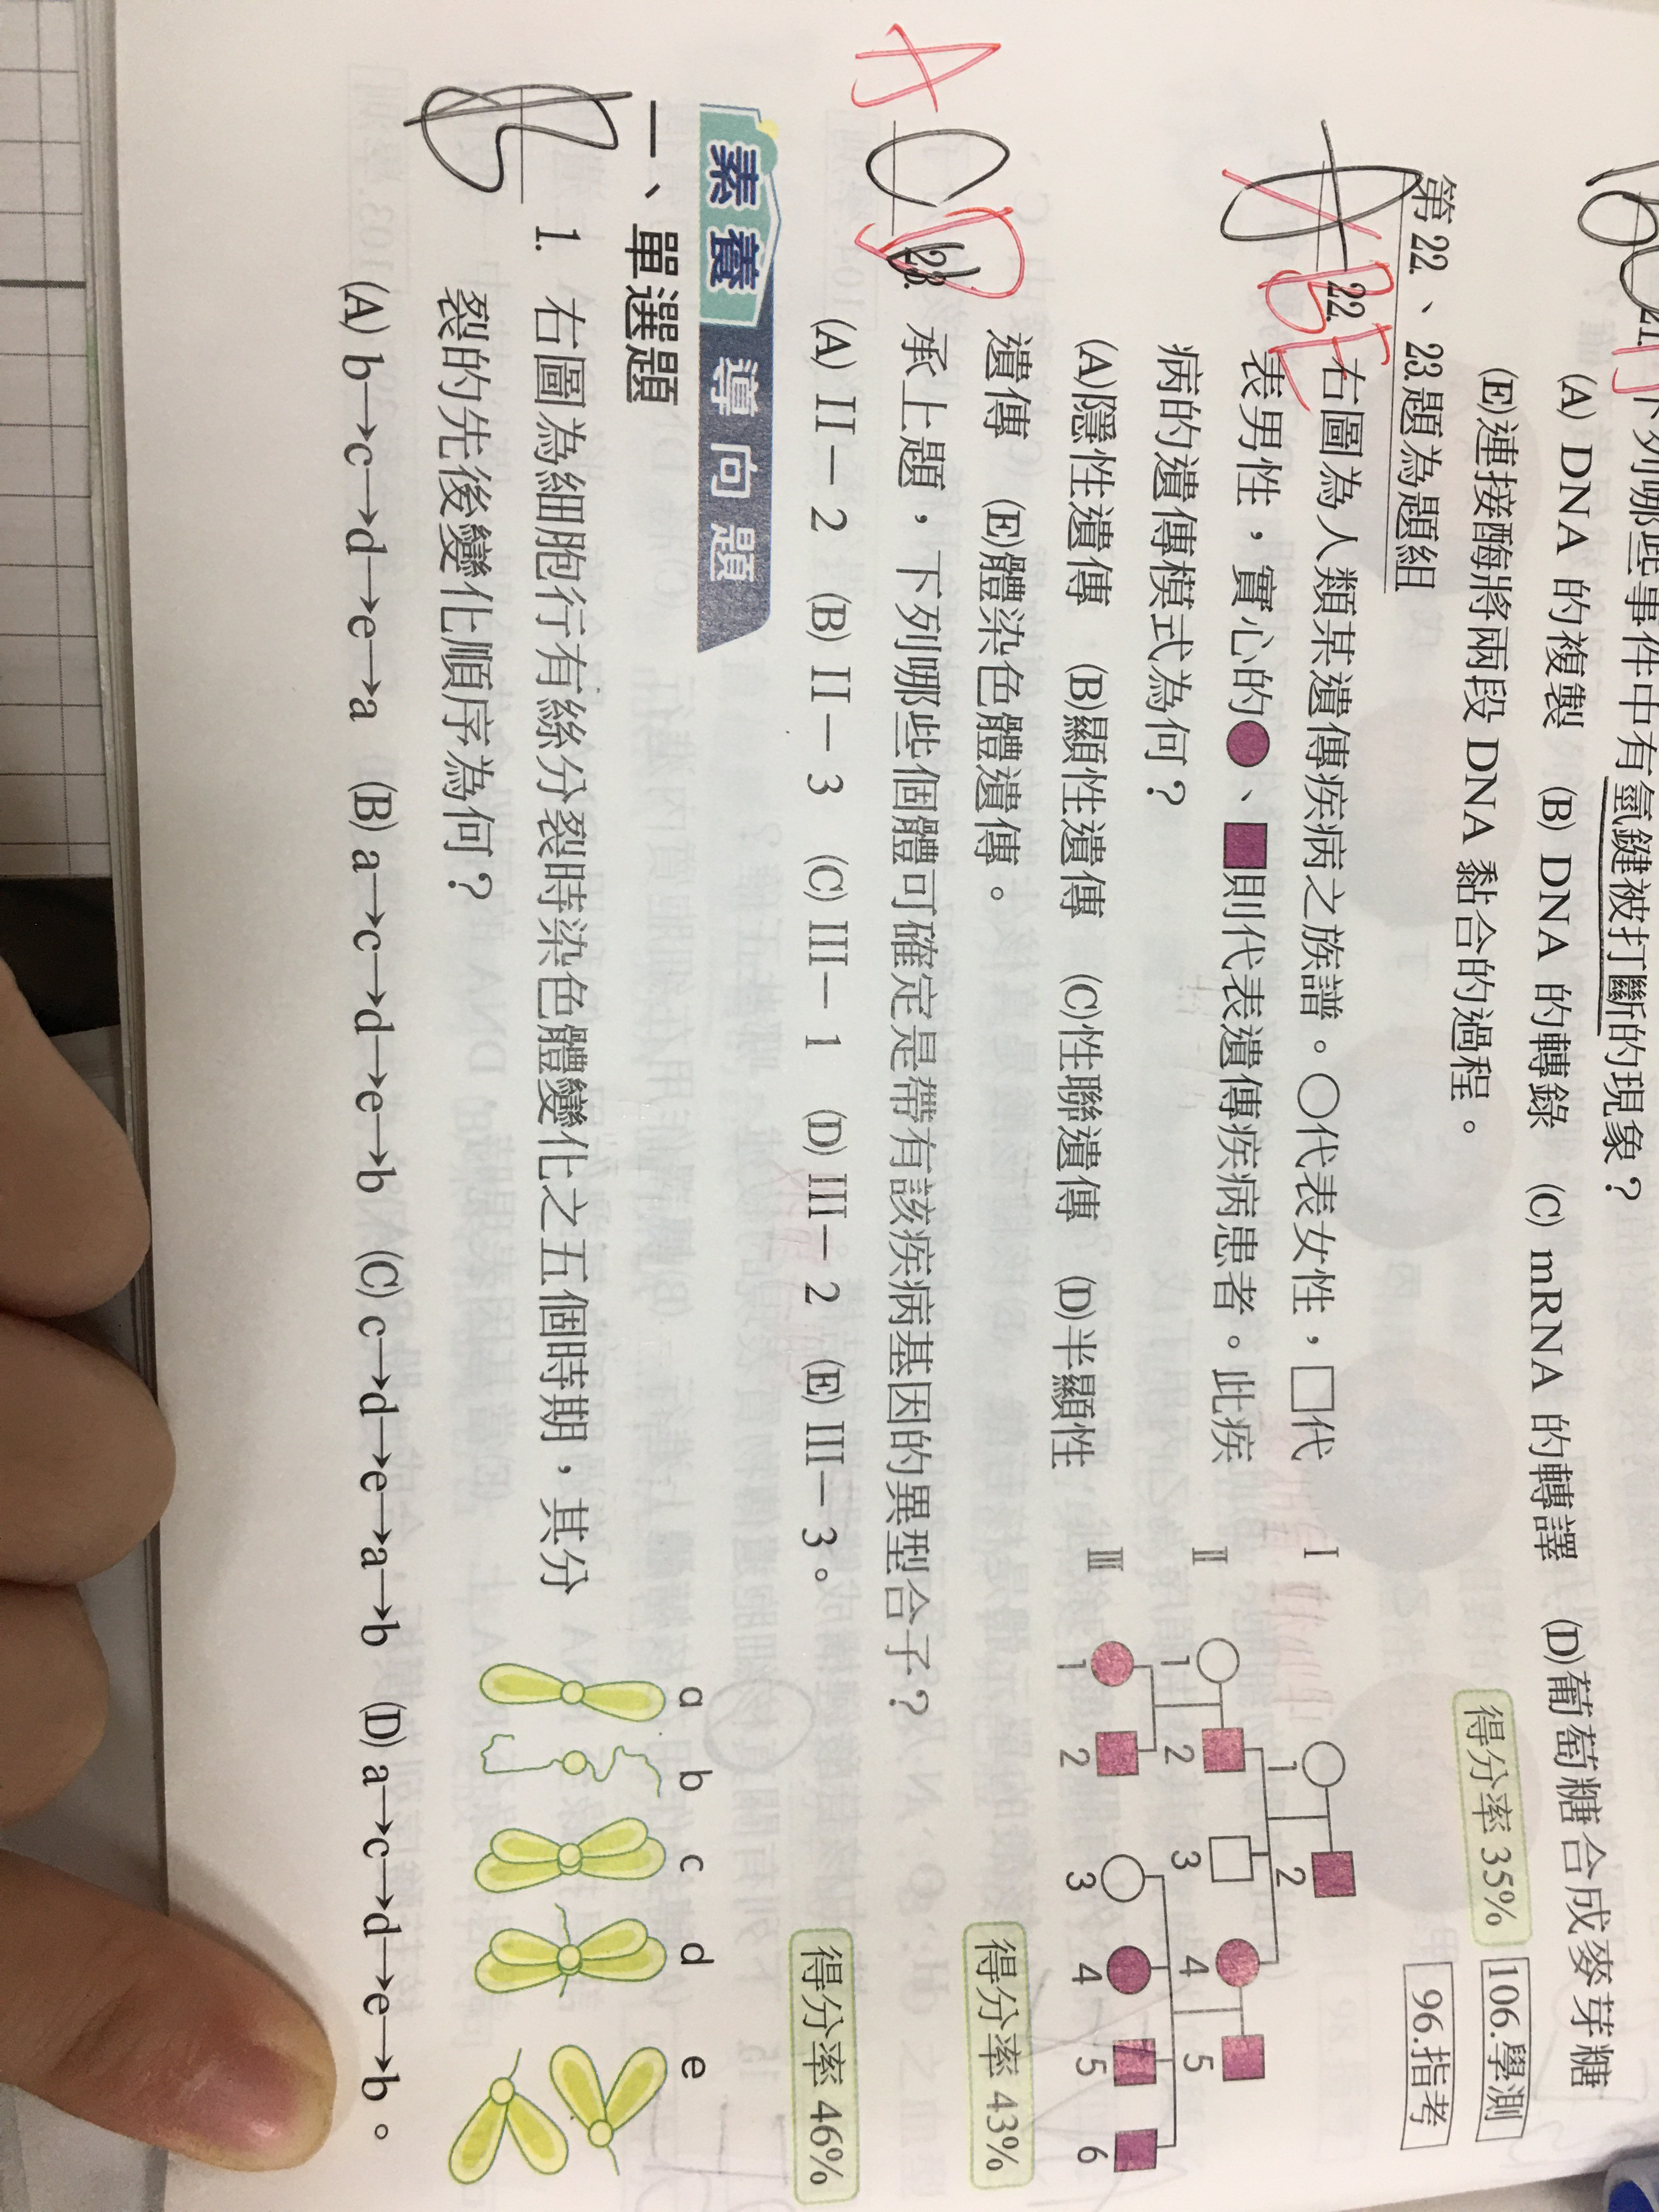 21.下列哪些事件中有氫鍵被打斷的現象？
(A) DNA 的複製 (B) DNA 的轉錄 (C) mRNA 的轉譯 (D)葡萄糖合成麥芽糖
(E)連接酶將兩段 DNA 黏合的過程。
得分率 35% 106.學測
第 22.、23.題為題組
96.指考
22.右圖為人類某遺傳疾病之族譜。○代表女性，□代
表男性，實心的●、■則代表遺傳疾病患者。此疾
病的遺傳模式為何？
(A)隱性遺傳 (B)顯性遺傳 (C)性聯遺傳 (D)半顯性
遺傳 (E)體染色體遺傳。
BE
I 1 2
II 1 2 3 4 5
III 1 2 3 4 5 6
得分率 43%
A
D
23.承上題，下列哪些個體可確定是帶有該疾病基因的異型合子？
(A) II－2 (B) II－3 (C) III－1 (D) III－2 (E) III－3。
得分率 46%
素養導向題
一、單選題
B
1. 右圖為細胞行有絲分裂時染色體變化之五個時期，其分
裂的先後變化順序為何？
a b c d e
(A) b→c→d→e→a (B) a→c→d→e→b (C) c→d→e→a→b (D) a→c→d→e→b。